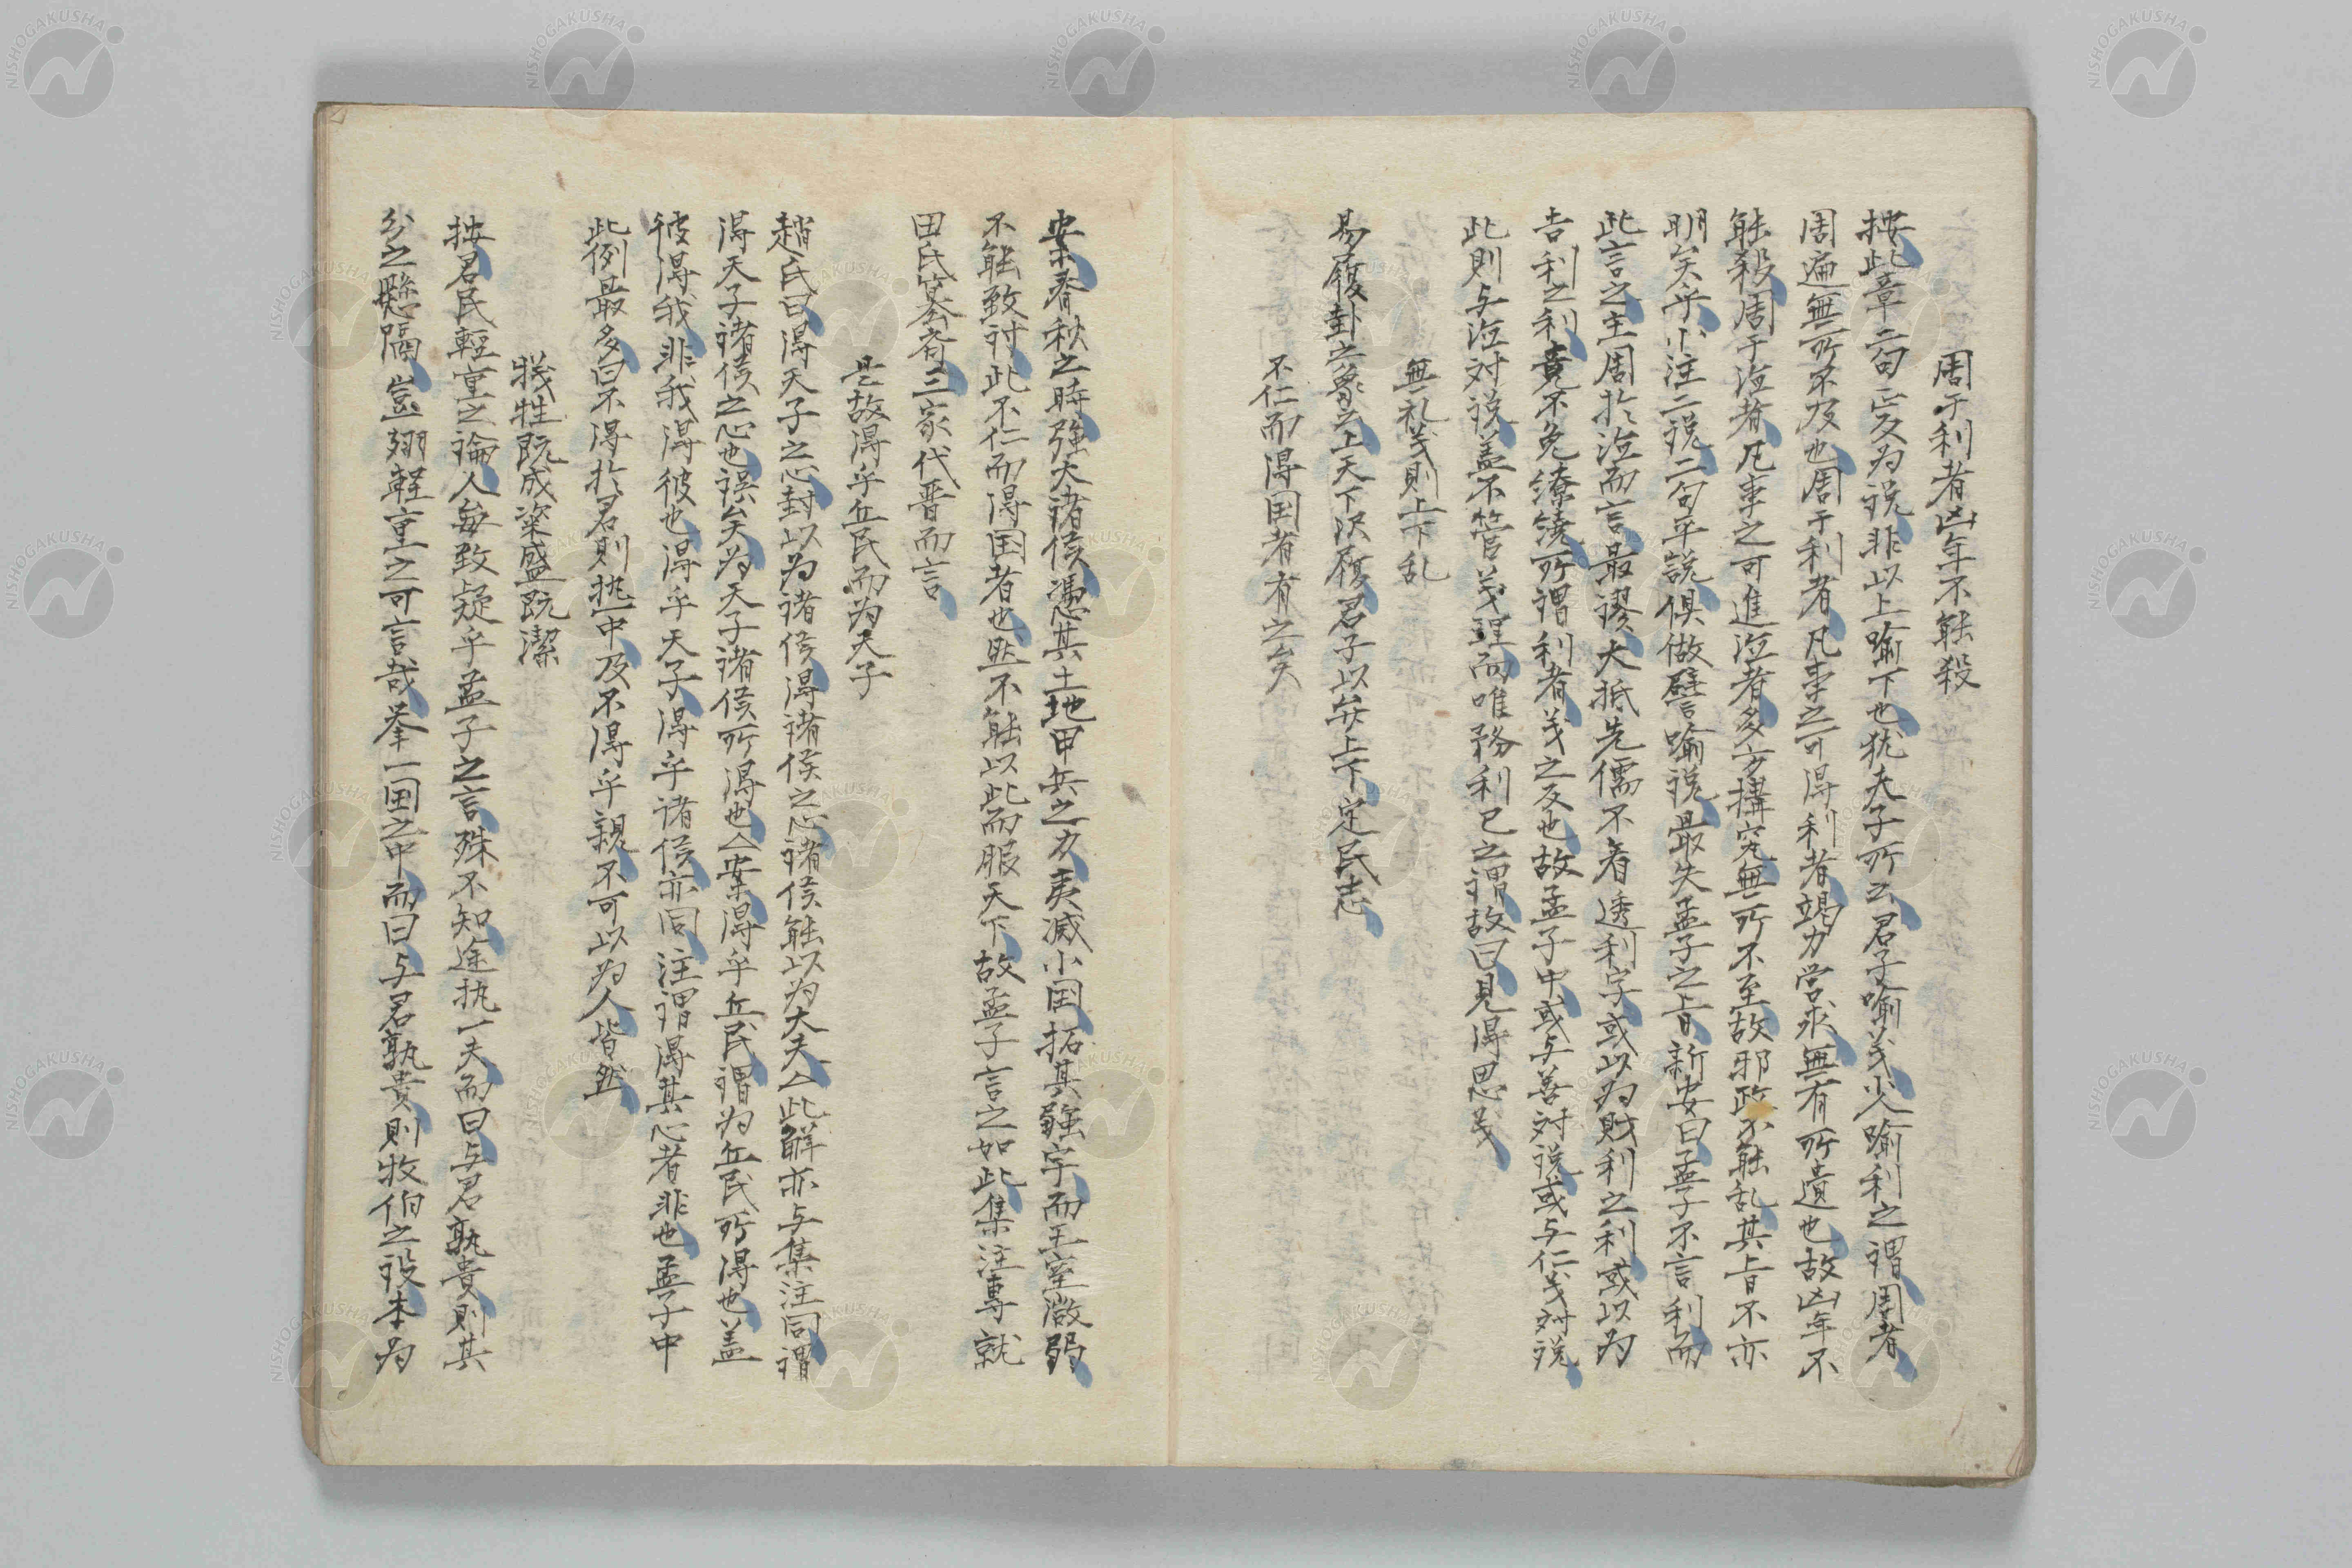 周于利者凶年不能殺
按此章二句正反为说非以上喻下也犹夫子所云君子喻义小人喻利之谓周者
周遍無所不及也周于利者凡事之可得利者竭力営求無有所遺也故凶年不
能殺周于德者凡事之可進德者多方構究無所不至故邪政不能乱其旨不亦
明矣乎小注二说二句平説俱做譬喻说最失孟子之旨新安曰孟子不言利而
此言之主周於德而言最謬大抵先儒不看透利字或以为財利之利或以为
吉利之利竟不免繚繞所謂利者义之反也故孟子中或与善対说或与仁义対说
此則与德対说盖不管义理而唯務利已之謂故曰見得思义
無礼义則上下乱
易履卦之象云上天下沢履君子以弁上下定民志
不仁而得国者有之矣
案春秋之時強大諸侯憑其土地甲兵之力夷滅小国拓其疆宇而王室微弱
不能致討此不仁而得国者也然不能以此而服天下故孟子言之如此集注専就
田氏簒斉三家代晋而言
是故得乎丘民而为天子
趙氏曰得天子之心封以为诸侯得諸侯之心諸侯能以为大夫△此解亦与集注同謂
得天子諸侯之心也误矣为天子諸侯所得也△案得乎丘民謂为丘民所得也盖
彼得我非我得彼也得乎天子得乎诸侯亦同注謂得其心者非也孟子中
此例最多曰不得於君則执中及不得乎親不可以为人皆然
犠牲既成粢盛既潔
按君民輕重之論人毎致疑乎孟子之言殊不知途执一夫而曰与君孰貴則其
分之懸隔豈翅輕重之可言哉挙一国之中而曰与君孰貴則牧伯之设本为